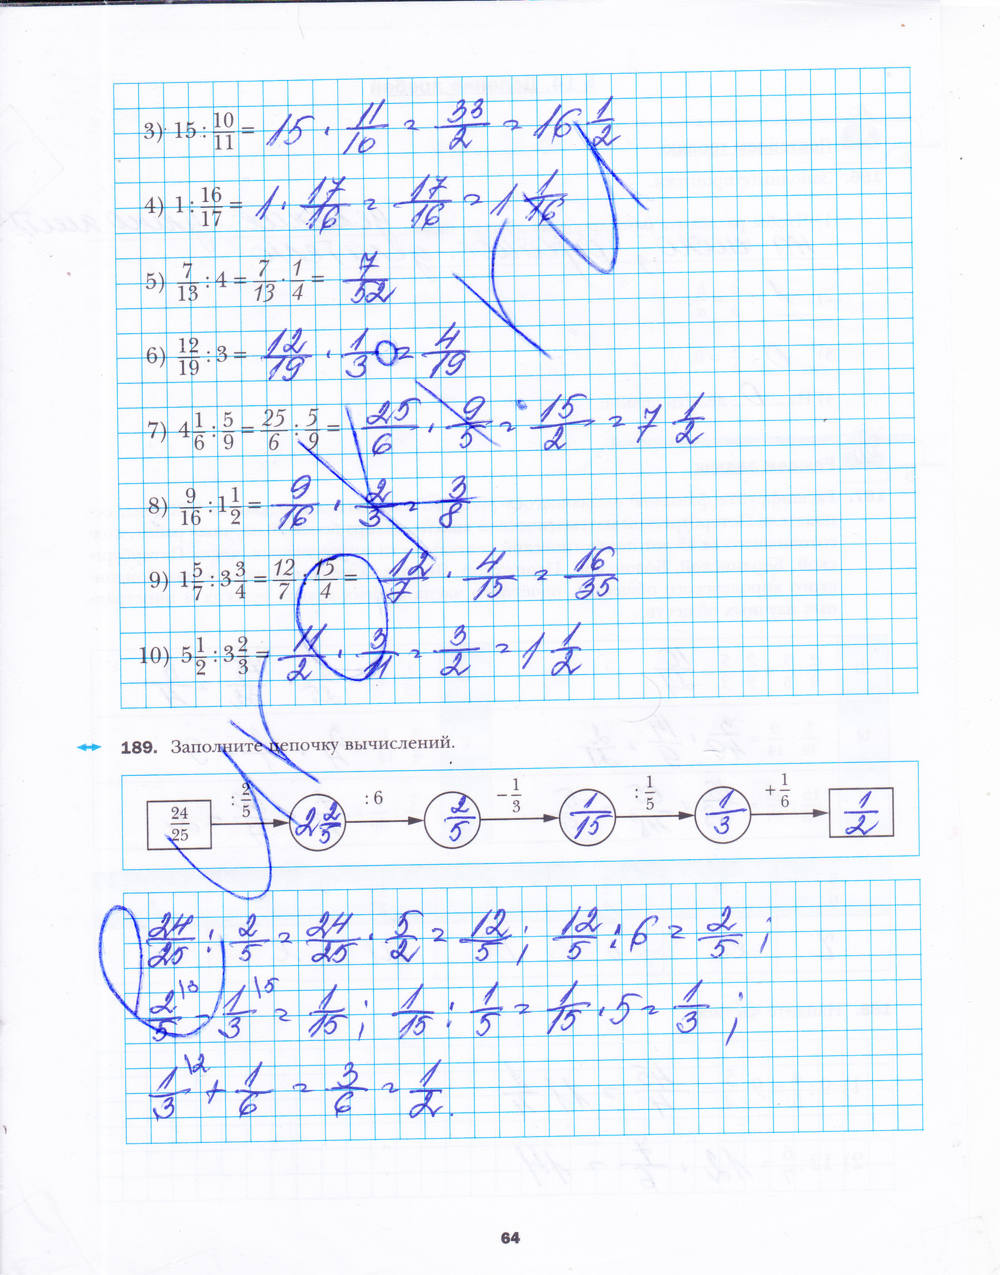 3) 15 : 10/11 = 15 · 11/10 = 33/2 = 16 1/2
4) 1 : 16/17 = 1 · 17/16 = 17/16 = 1 1/16
5) 7/13 : 4 = 7/13 · 1/4 = 7/52
6) 12/19 : 3 = 12/19 · 1/3 = 4/19
7) 4 1/6 : 5/9 = 25/6 : 5/9 = 25/6 · 9/5 = 15/2 = 7 1/2
8) 9/16 : 1 1/2 = 9/16 · 2/3 = 3/8
9) 1 5/7 : 3 3/4 = 12/7 : 15/4 = 12/7 · 4/15 = 16/35
10) 5 1/2 : 3 2/3 = 11/2 · 3/11 = 3/2 = 1 1/2
189. Заполните цепочку вычислений.
24/25 : 2/5 2 2/5 : 6 2/5 − 1/3 1/15 : 1/5 1/3 + 1/6 1/2
24/25 : 2/5 = 24/25 · 5/2 = 12/5 ; 12/5 : 6 = 2/5 ;
2/5 \3 − 1/3 \5 = 1/15 ; 1/15 : 1/5 = 1/15 · 5 = 1/3 ;
1/3 \2 + 1/6 = 3/6 = 1/2 .
64